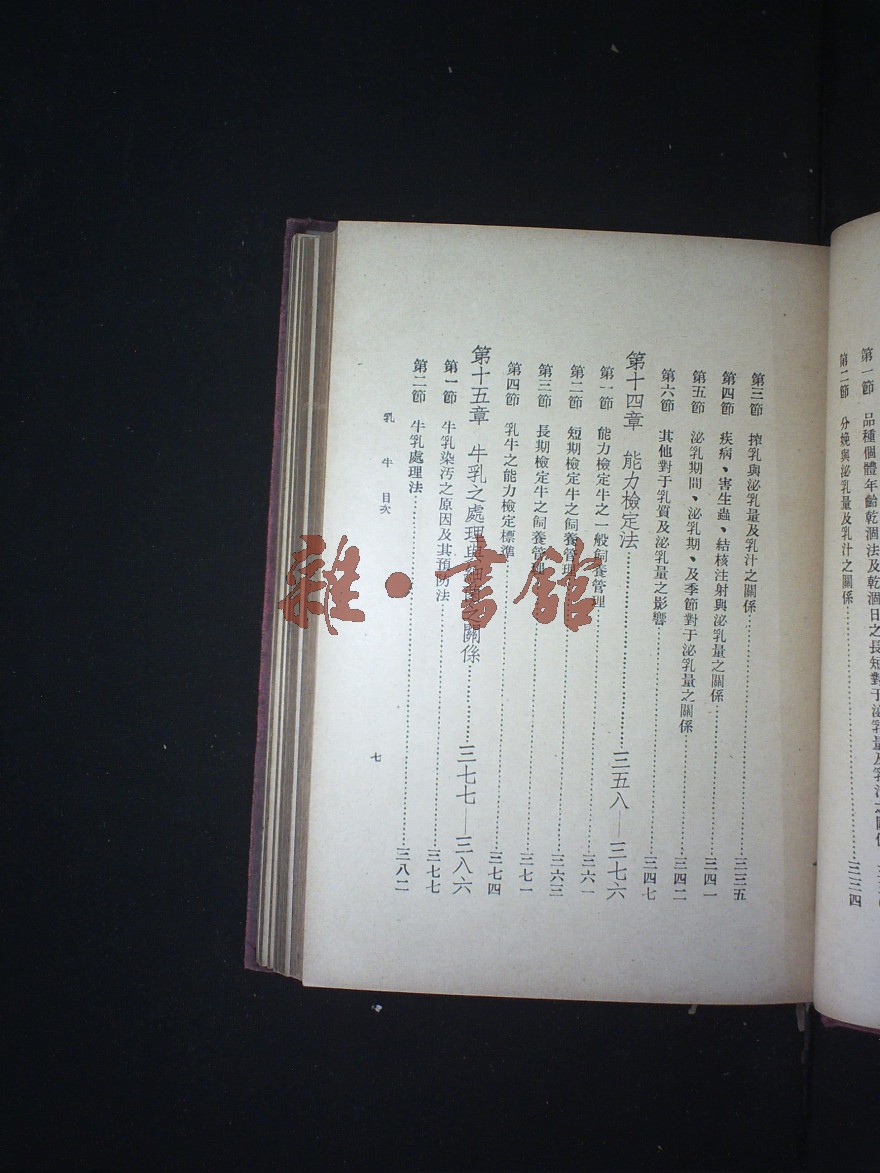 第一節 品種個體年齡乾涸法及乾涸日之長短對于泌乳量及乳汁之關係
第二節 分娩與泌乳量及乳汁之關係 三三四
第三節 搾乳與泌乳量及乳汁之關係 三三五
第四節 疾病、害生蟲、結核注射與泌乳量之關係 三四一
第五節 泌乳期間、泌乳期、及季節對于泌乳量之關係 三四二
第六節 其他對于乳質及泌乳量之影響 三四七
第十四章 能力檢定法 三五八—三七六
第一節 能力檢定牛之一般飼養管理 三六一
第二節 短期檢定牛之飼養管理 三六三
第三節 長期檢定牛之飼養管理 三七一
第四節 乳牛之能力檢定標準 三七四
第十五章 牛乳之處理與細菌之關係 三七七—三八六
第一節 牛乳染污之原因及其預防法 三七七
第二節 牛乳處理法 三八二
乳牛 目次
七
雜·書館